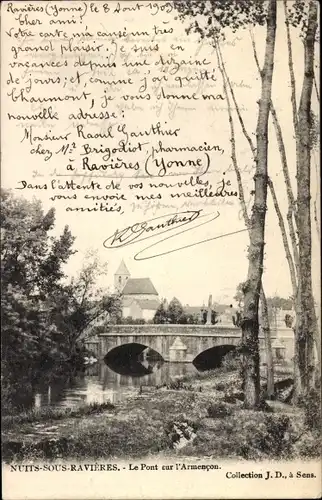 Ravières (Yonne) le 8 Août 1903
Cher ami!
Votre carte m'a causé un très
grand plaisir. Je suis en
vacances depuis une dizaine
de jours; et, comme j'ai quitté
Chaumont, je vous donne ma
nouvelle adresse:
Monsieur Raoul Gauthier
chez Mr Brigodiot, pharmacien,
à Ravières (Yonne)
Dans l'attente de vos nouvelles, je
vous envoie mes meilleures
amitiés,
R. Gauthier
NUITS-SOUS-RAVIÈRES. - Le Pont sur l'Armençon.
Collection J. D., à Sens.